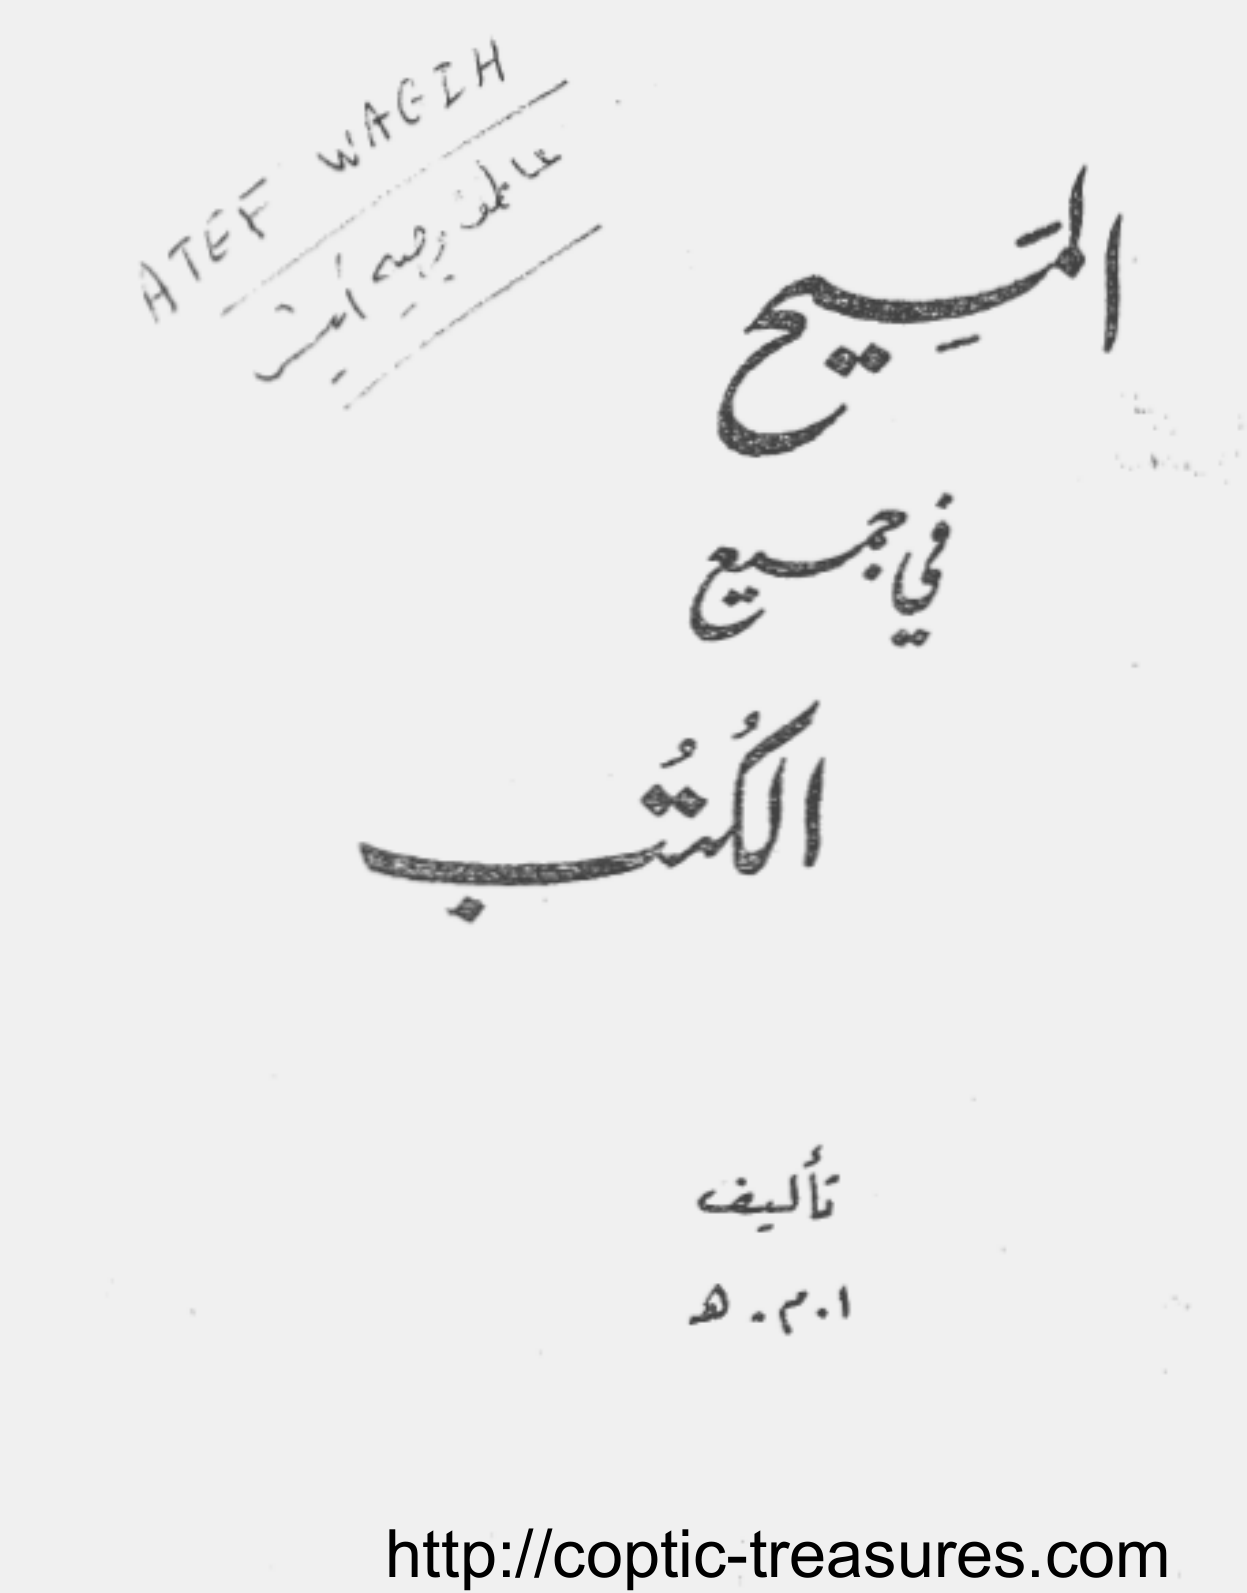 ATEF WAGIH
عاطف وجيه أمين
المَسِيح
في جميع
الكُتُب
تأليف
ا. م. هـ
http://coptic-treasures.com